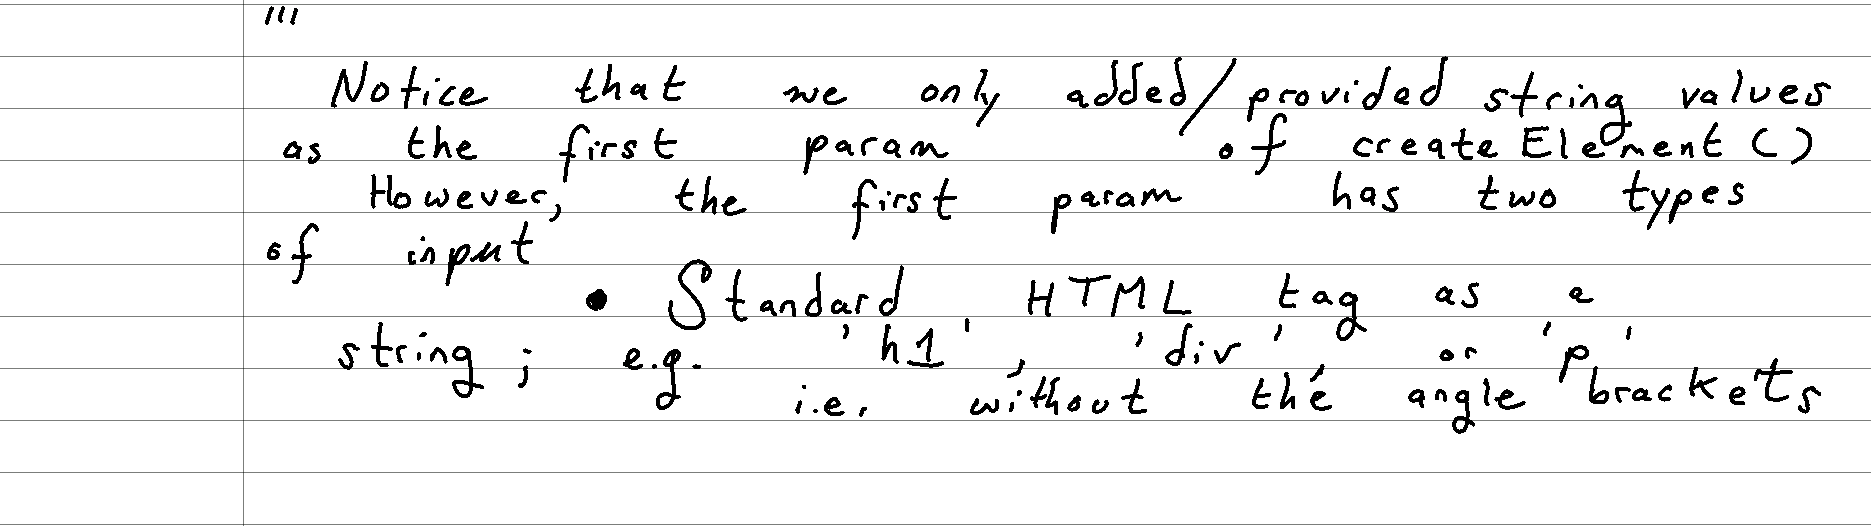 '''
Notice that we only added/provided string values
as the first param of createElement()
However, the first param has two types
of input
• Standard HTML tag as a
string; e.g. 'h1', 'div' or 'p'
i.e. without the angle brackets